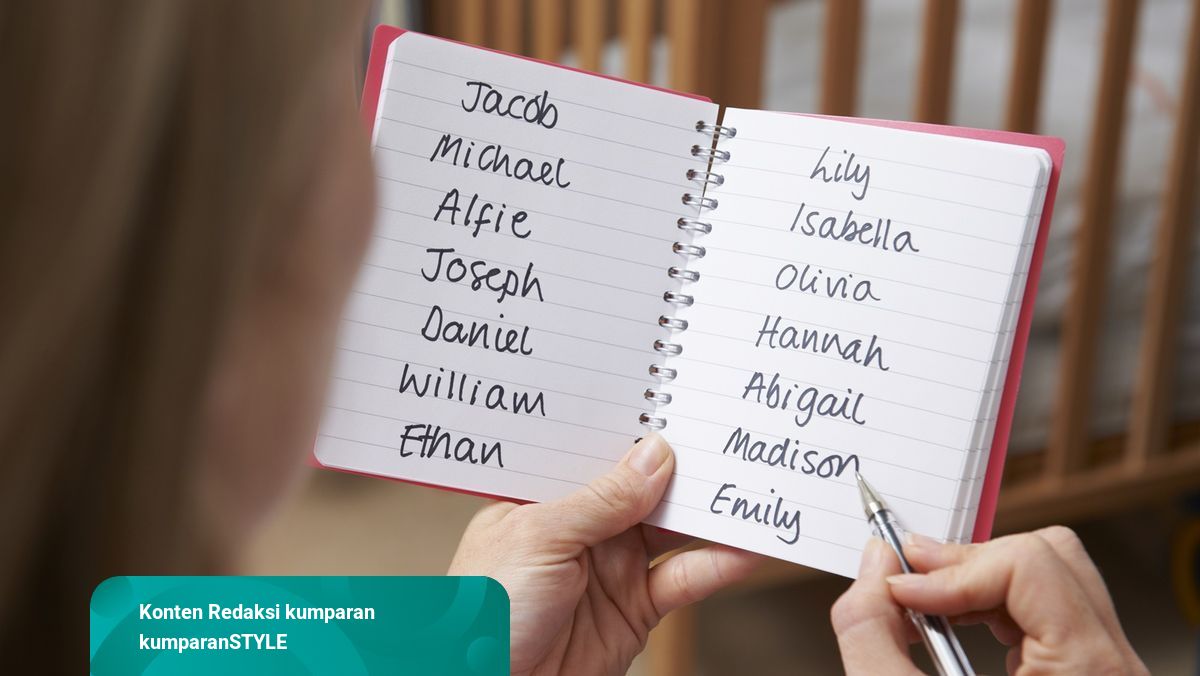 Jacob
Michael
Alfie
Joseph
Daniel
William
Ethan
Lily
Isabella
Olivia
Hannah
Abigail
Madison
Emily
Konten Redaksi kumparan
kumparanSTYLE